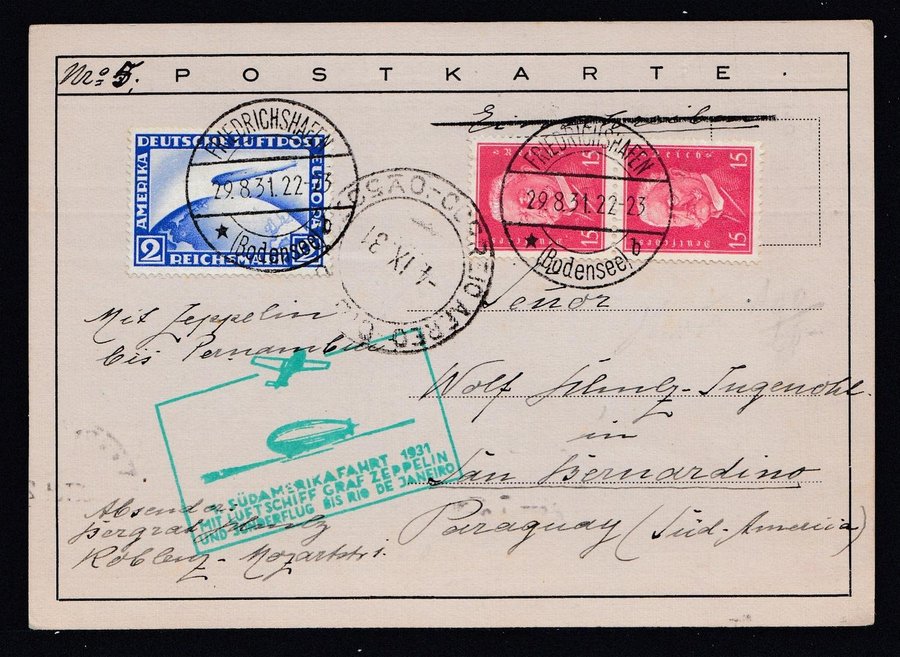 Nro 5.
POSTKARTE.
Einschreiben
DEUTSCHE LUFTPOST
AMERIKA
EUROPA
2
REICHSMARK
FRIEDRICHSHAFEN
29.8.31.22-23
b
(Bodensee)
15
15
FRIEDRICHSHAFEN
29.8.31.22-23
b
(Bodensee)
CORREIO AEREO
4.IX.31
Senor
Mit Zeppelin
bis Pernambuco
Wolf
in
San Bernardino
Paraguay (Süd-America)
1. SÜDAMERIKAFAHRT 1931
MIT LUFTSCHIFF GRAF ZEPPELIN
UND SONDERFLUG BIS RIO DE JANEIRO
Absender:
Bergrat
Koblenz - Mozartstr.